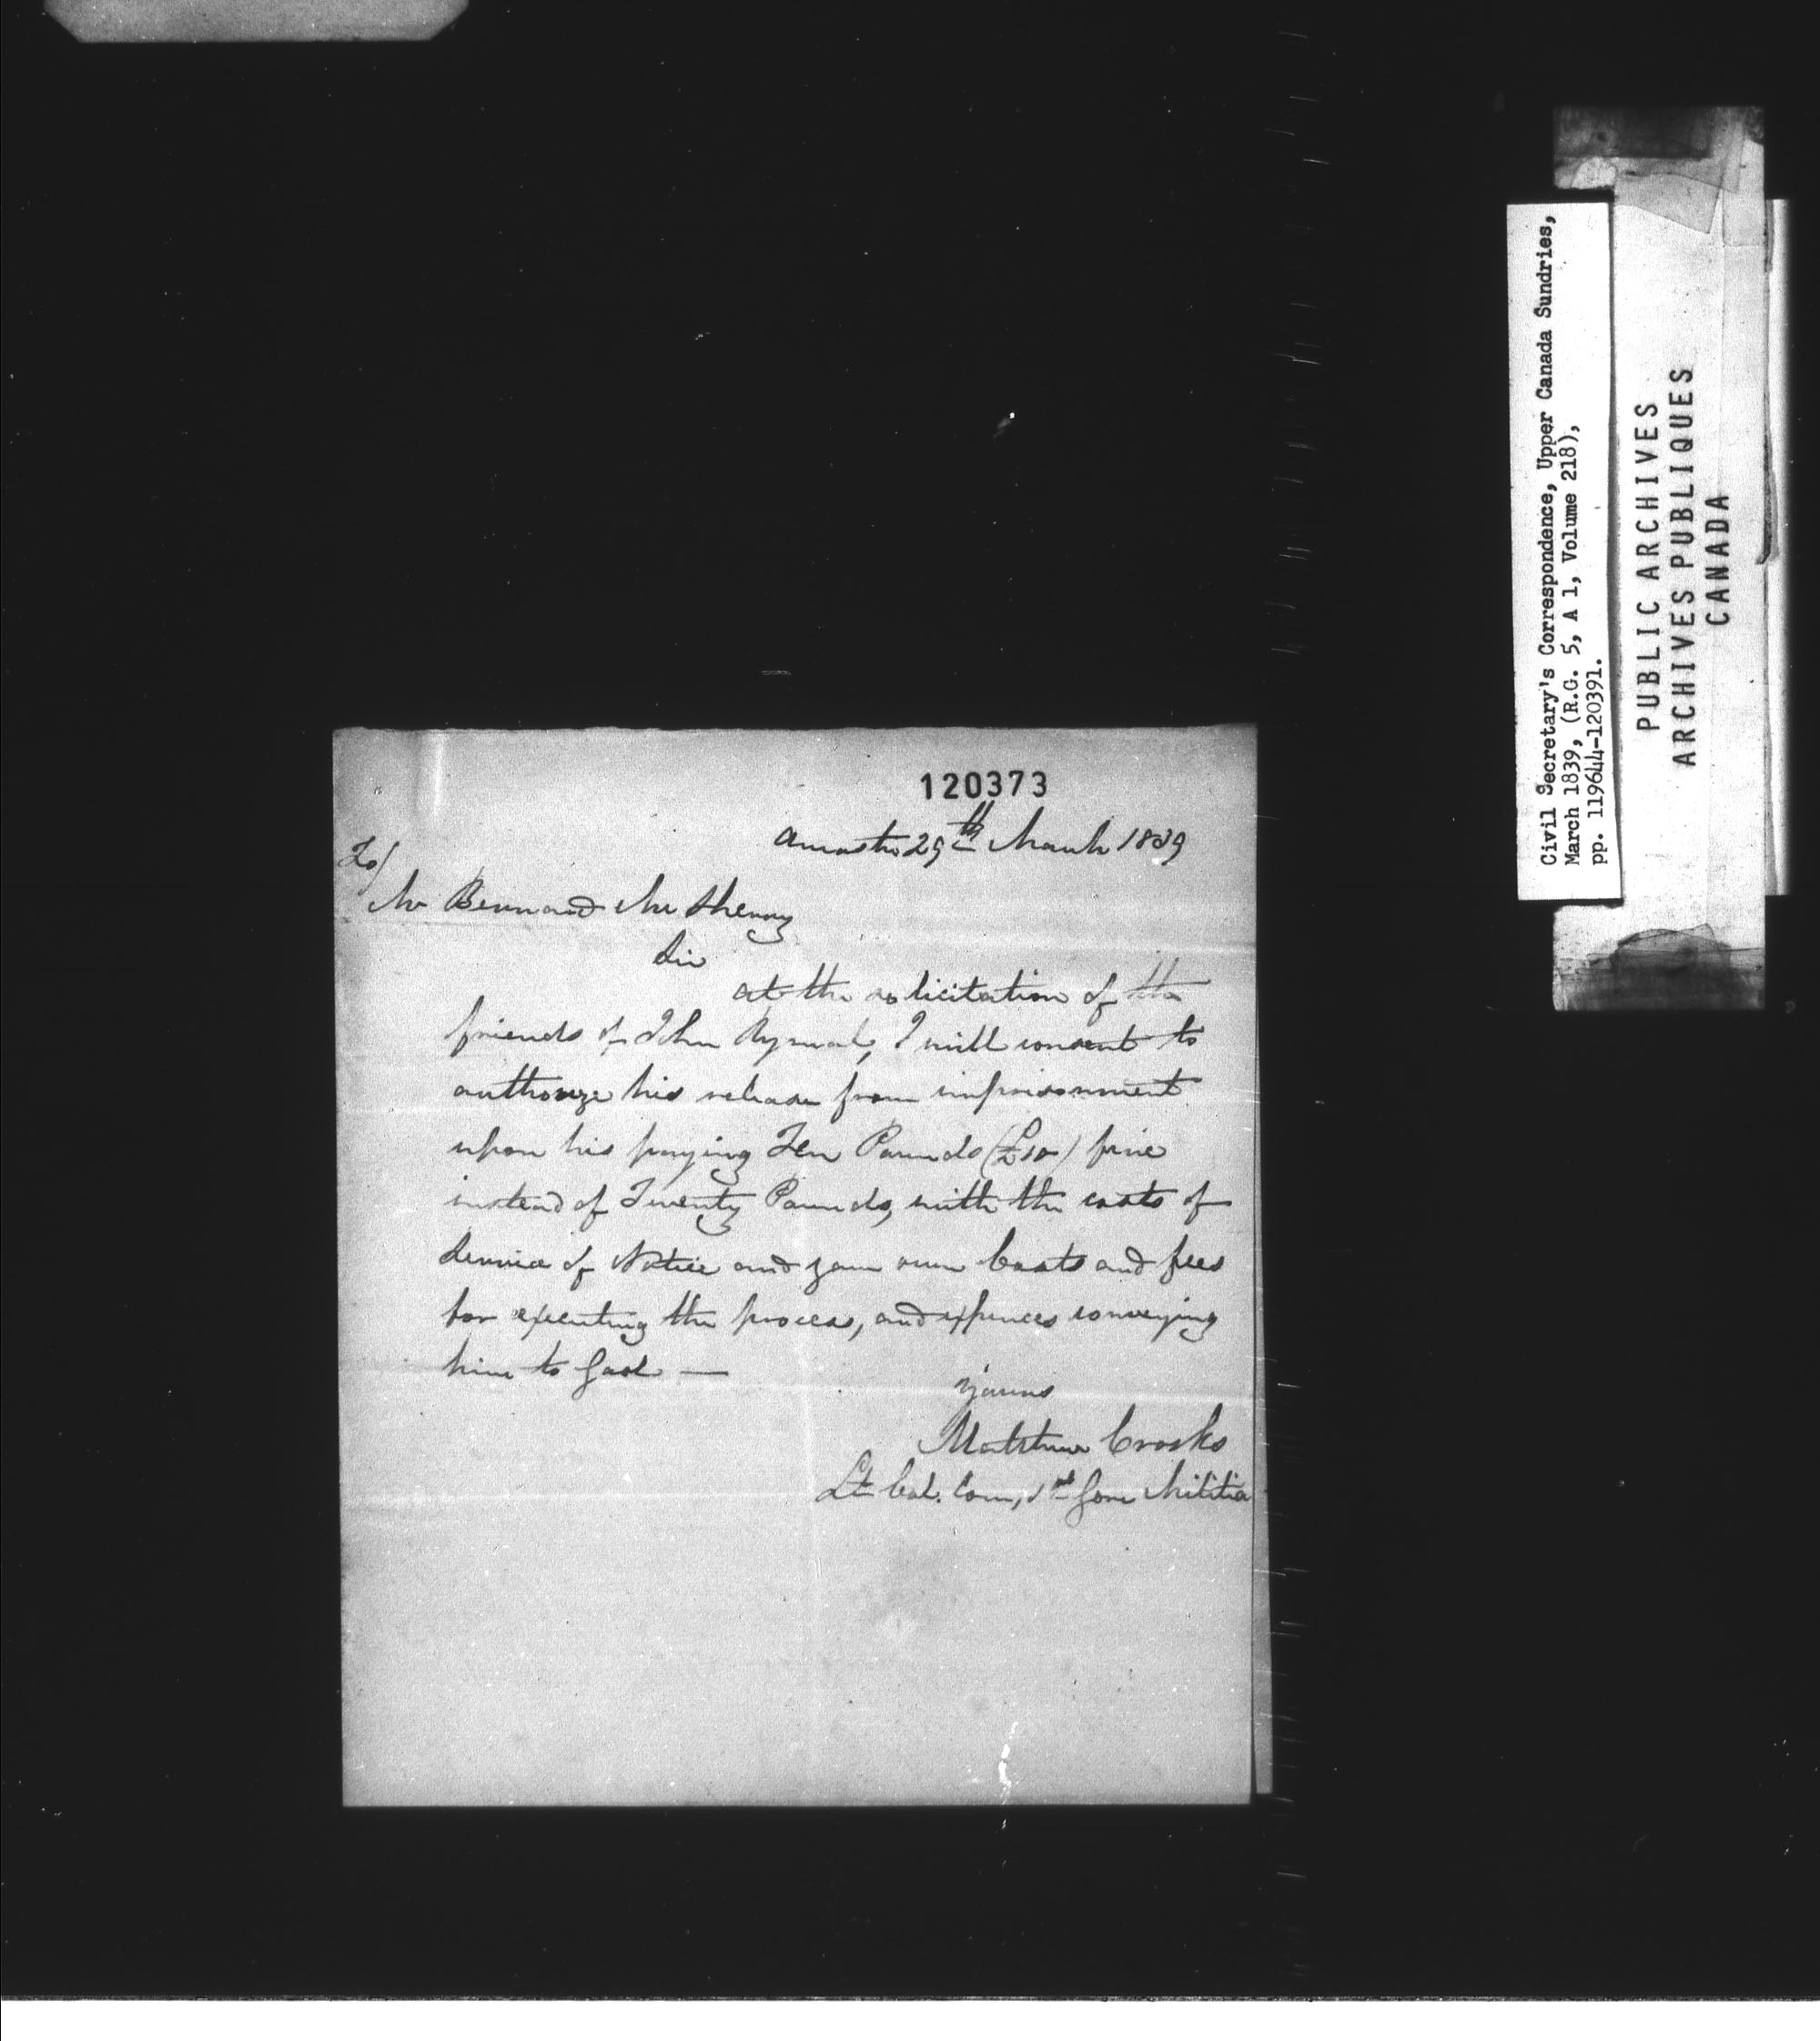 120373
Ancaster 29th March 1839
To/
Mr Bernard McSherry
Sir
at the solicitation of the
friends of John Rymal, I will consent to
authorize his release from imprisonment
upon his paying Ten Pounds (£10) fine
instead of Twenty Pounds, with the costs of
Service of Notice and your own Costs and fees
for executing the process, and expences conveying
him to Gaol —
Yours
Matthew Crooks
Lt Col. Com, 1st Gore Militia
Civil Secretary's Correspondence, Upper Canada Sundries,
March 1839, (R.G. 5, A 1, Volume 218),
pp. 119644-120391.
PUBLIC ARCHIVES
ARCHIVES PUBLIQUES
CANADA